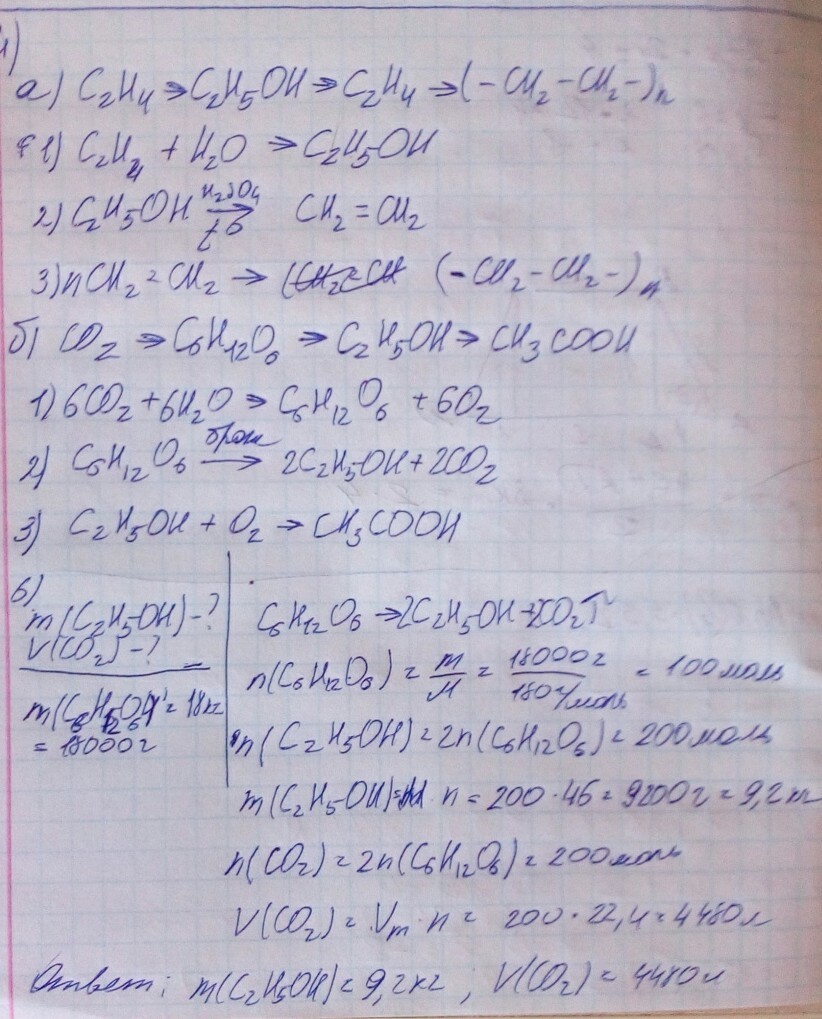 1)
а) C₂H₄ → C₂H₅OH → C₂H₄ → (-CH₂-CH₂-)ₙ
1) C₂H₄ + H₂O → C₂H₅OH
2) C₂H₅OH H₂SO₄ → CH₂ = CH₂
3) nCH₂ = CH₂ → (-CH₂-CH₂-)ₙ
б) CO₂ → C₆H₁₂O₆ → C₂H₅OH → CH₃COOH
1) 6CO₂ + 6H₂O → C₆H₁₂O₆ + 6O₂
2) C₆H₁₂O₆ брож → 2C₂H₅OH + 2CO₂
3) C₂H₅OH + O₂ → CH₃COOH
в)
m(C₂H₅OH) - ?
V(CO₂) - ?
m(C₆H₁₂O₆) = 18кг
= 18000г
C₆H₁₂O₆ → 2C₂H₅OH + 2CO₂↑
n(C₆H₁₂O₆) = m/M = 18000г/180г/моль = 100моль
n(C₂H₅OH) = 2n(C₆H₁₂O₆) = 200моль
m(C₂H₅OH) = M · n = 200 · 46 = 9200г = 9,2кг
n(CO₂) = 2n(C₆H₁₂O₆) = 200моль
V(CO₂) = Vₘ · n = 200 · 22,4 = 4480л
Ответ: m(C₂H₅OH) = 9,2кг ; V(CO₂) = 4480л